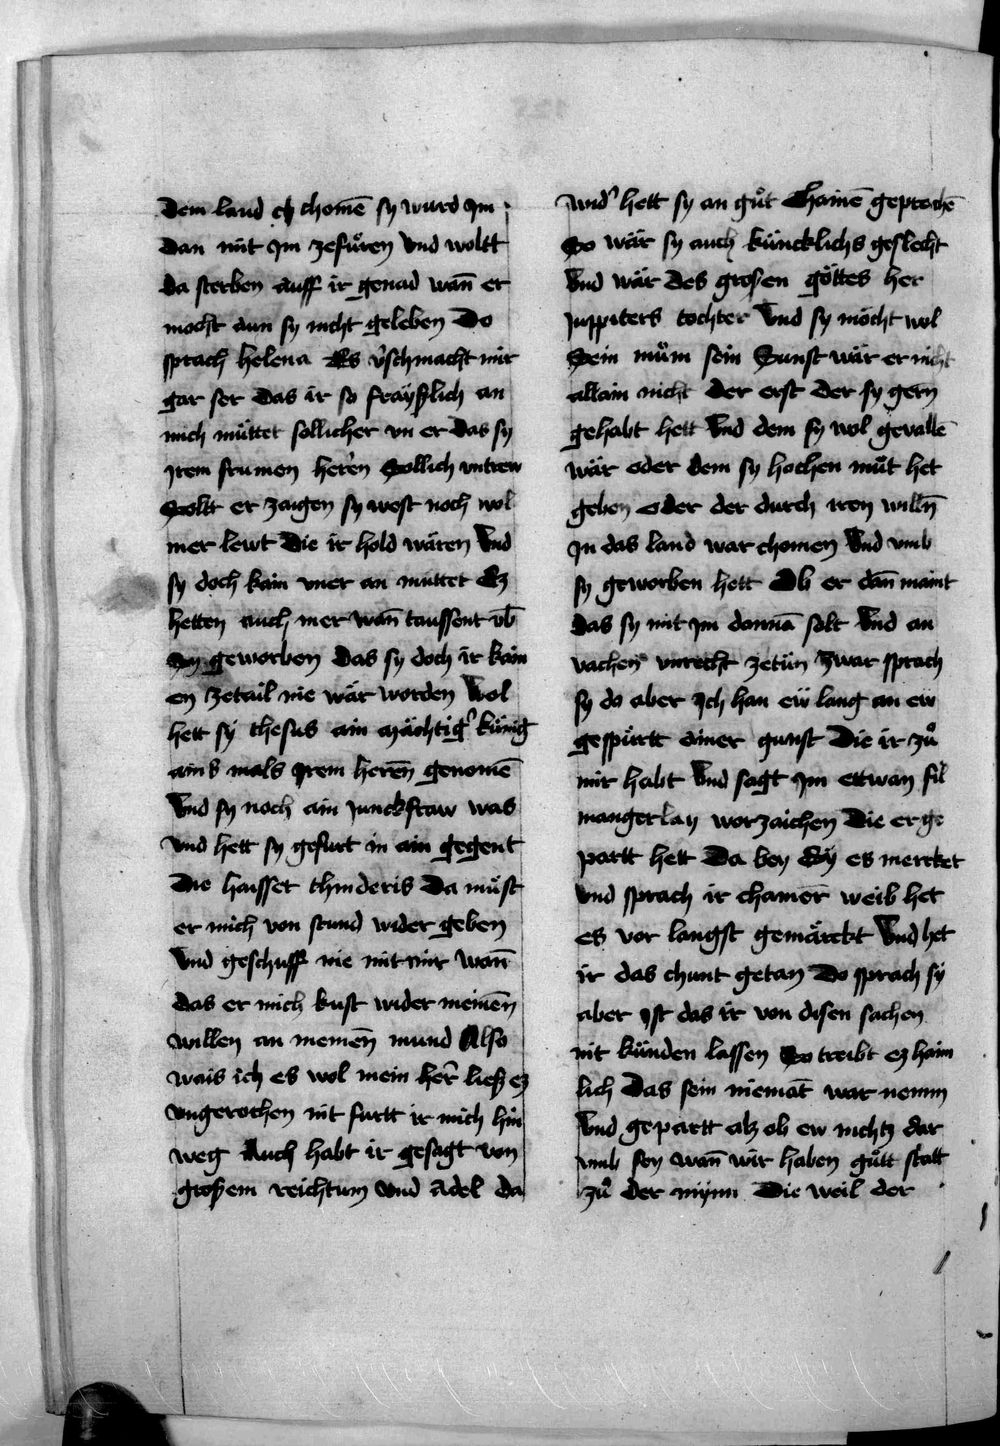 dem land ch chomē sy wurd Im
dan mit Im zefůren Vnd woltt
da sterben auff ir genad wañ er
mocht ann sy nicht geleben Do
sprach helena Es v̾schmacht mir
gar ser das ir so fräyslich an
mich mütter sollicher vn er das sy
Irem frumen hern̄ Sollich vntrew
Solt er zaigen sy west noch wol
mer lewt Die ir hold wären Vnd
sy doch kain vner an muttet Ez
hetten auch mer wañ taussent vb̄
Sy geworben Das sy doch ir kain
en zetail nie wär worden Wol
hett sy thesus ain mächtig̾ künig
ains mals Irem heren̄ genomē
Vnd sy noch ain Junckfraw was
vnd hett sy gefurt in ain gegent
Die haisset thinderis Da můst
er mich von stund wider geben
Vnd geschuff nie mit mir wann̄
das er mich kust wider meinen̄
willen an meinen̄ mund Also
wais ich es wol mein her̄ ließ ez
vngerochen nit furtt ir mich hin
weg Auch habt ir gesagt von
großem reichtum vnd adel da
vnd̾ hett sy an gůt Chainē geprochē
So wär sy auch künicklichs geslecht
Vnd wär des großen göttes her
Juppiters tochter Vnd sy möcht wol
Sein mům sein Sunst wär er nicht
allain nicht der erst der sy gern
gehabt hett Vnd dem sy wol gevallē
wär oder dem sy hochen můt het
geben oder der durch iren willn̄
In das land war chomen Vnd vmb
sy geworben hett Ob er dan̄ maint
das sy mit Im dannā solt Vnd an
vachen vnrecht zetün Zwar sprach
sy do aber Ich han eẅ lang an ew
gespürtt ainer gunst Die ir zů
mir habt Vnd sagt Im ettwan fil
mangerlay worzaichen Die er ge
partt hett Da bey Sy es mercket
vnd sprach ir chamer̄ weib het
es vor langst gemärckt Vnd het
ir das chunt getan Do sprach sy
aber Ist das ir von disen sachen
nit künden lassen So treibt ez haim
lich Das sein niemāt war nemm
Vnd gepartt alz ob ew nichtz dar
vmb sey wañ wir haben gůtt statt
zů der mynn Die weil der